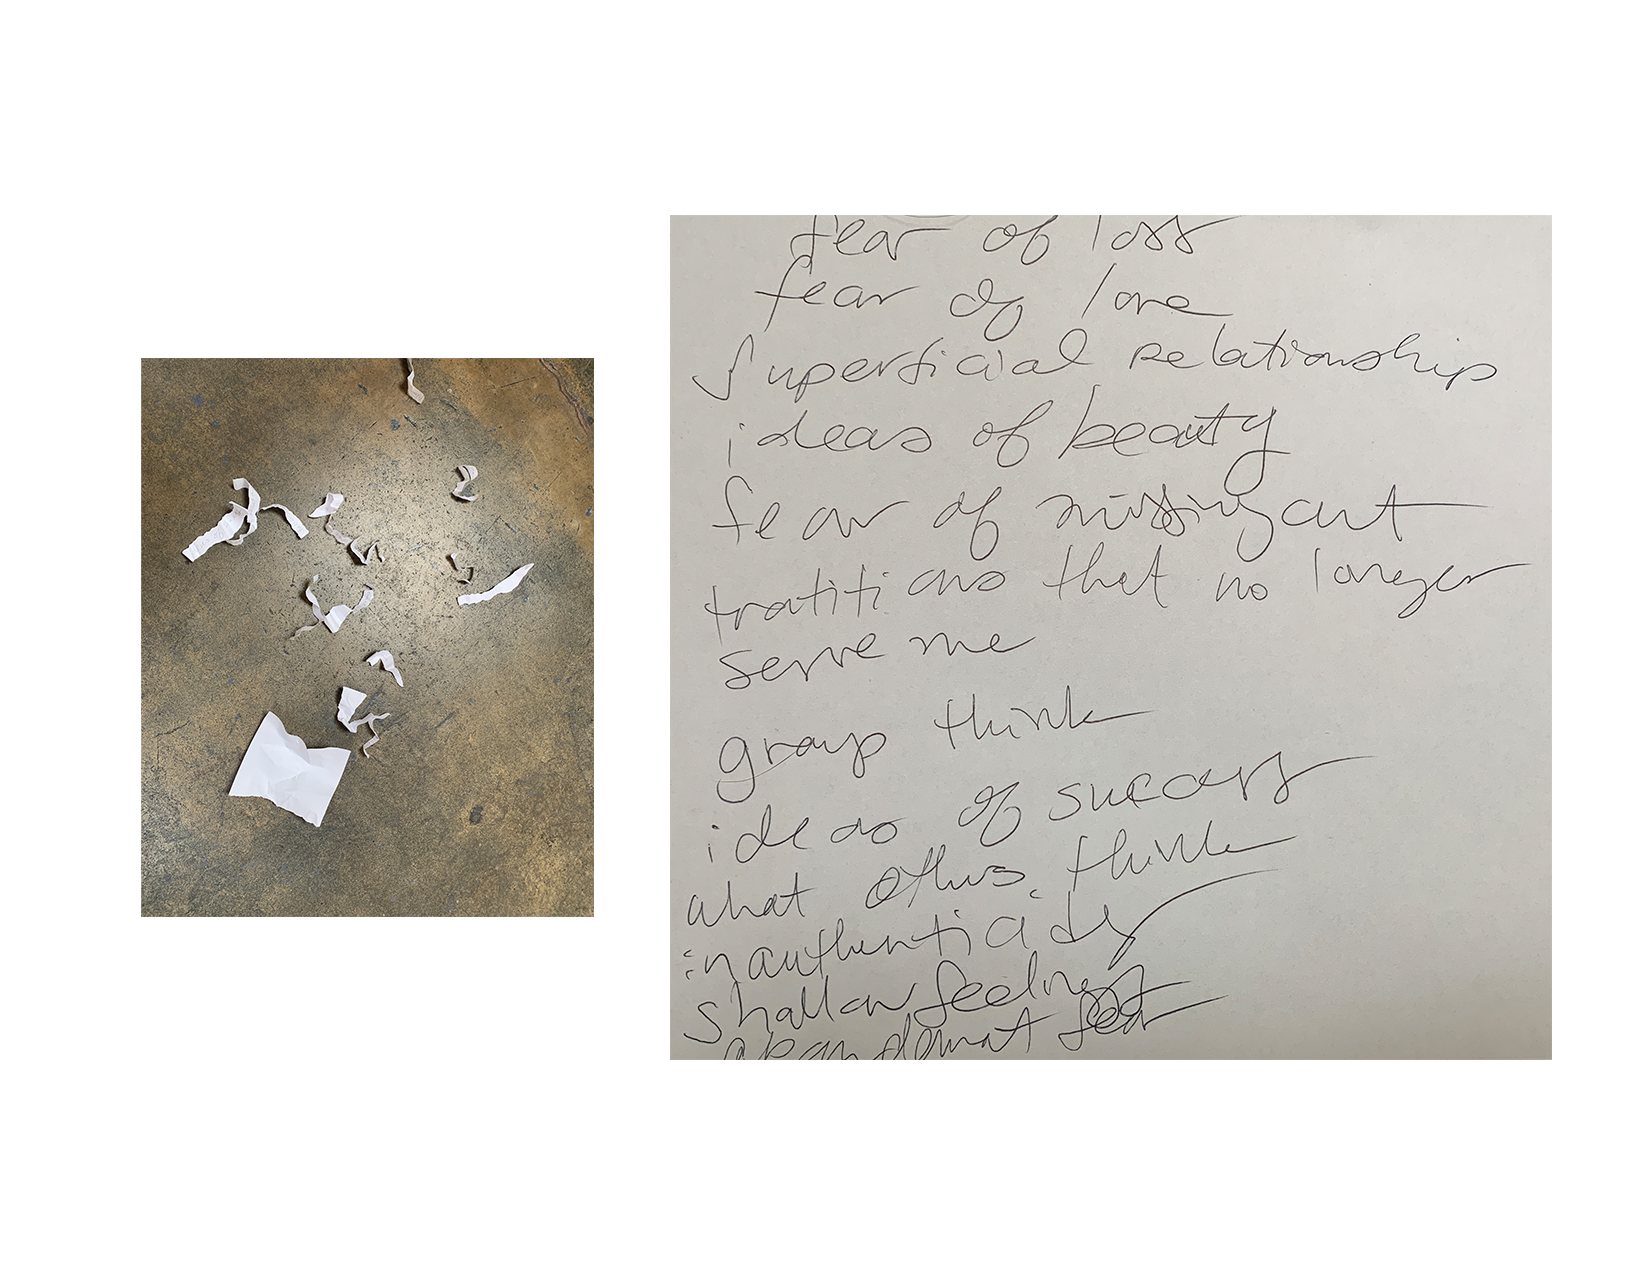 fear of loss
fear of love
superficial relationship
ideas of beauty
fear of missing out
tratitions that no longer
serve me
group think
ideas of success
what others think
inauthenticity
shallow feelings
fear